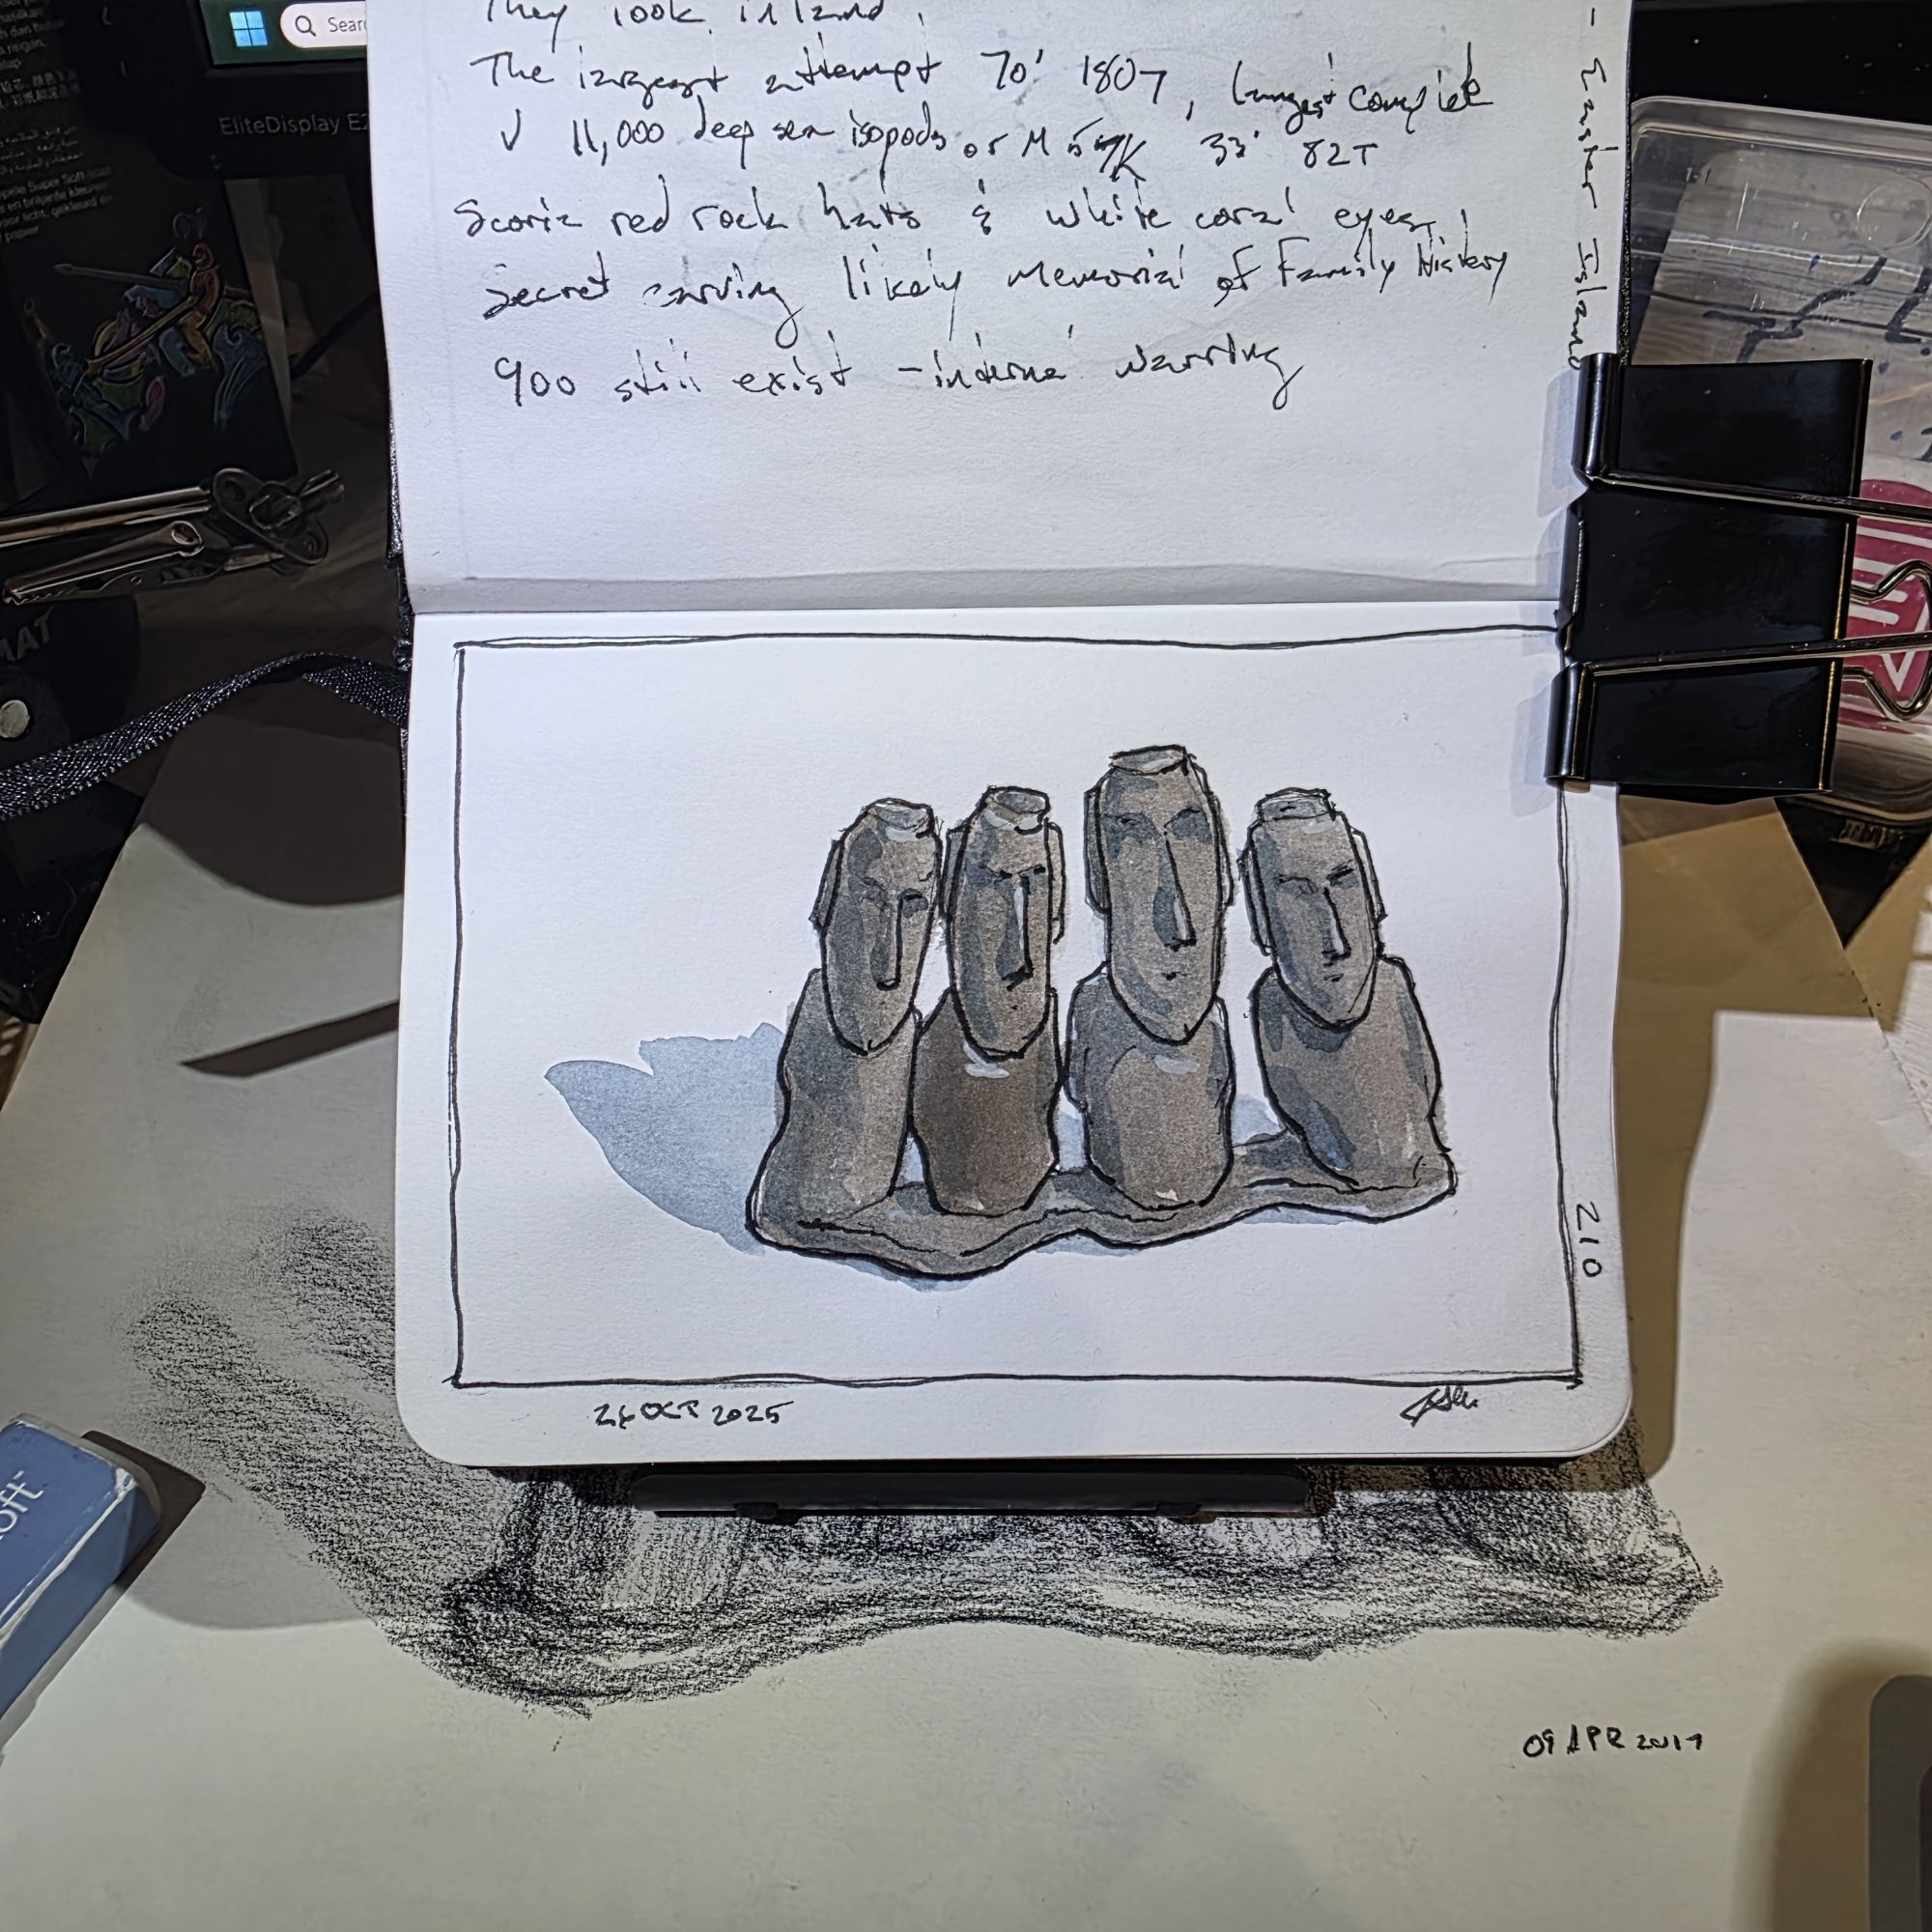 Sear
EliteDisplay E2
They look inland.
The largest attempt 70' 180T, largest complete
√ 11,000 deep sea isopods or M 5 K 33' 82T
Scoria red rock hats & white coral eyes
Secret carving likely memorial of Family History
900 still exist - internal warring
- Easter Island
210
26 OCT 2025
MAT
oft
09 APR 2017